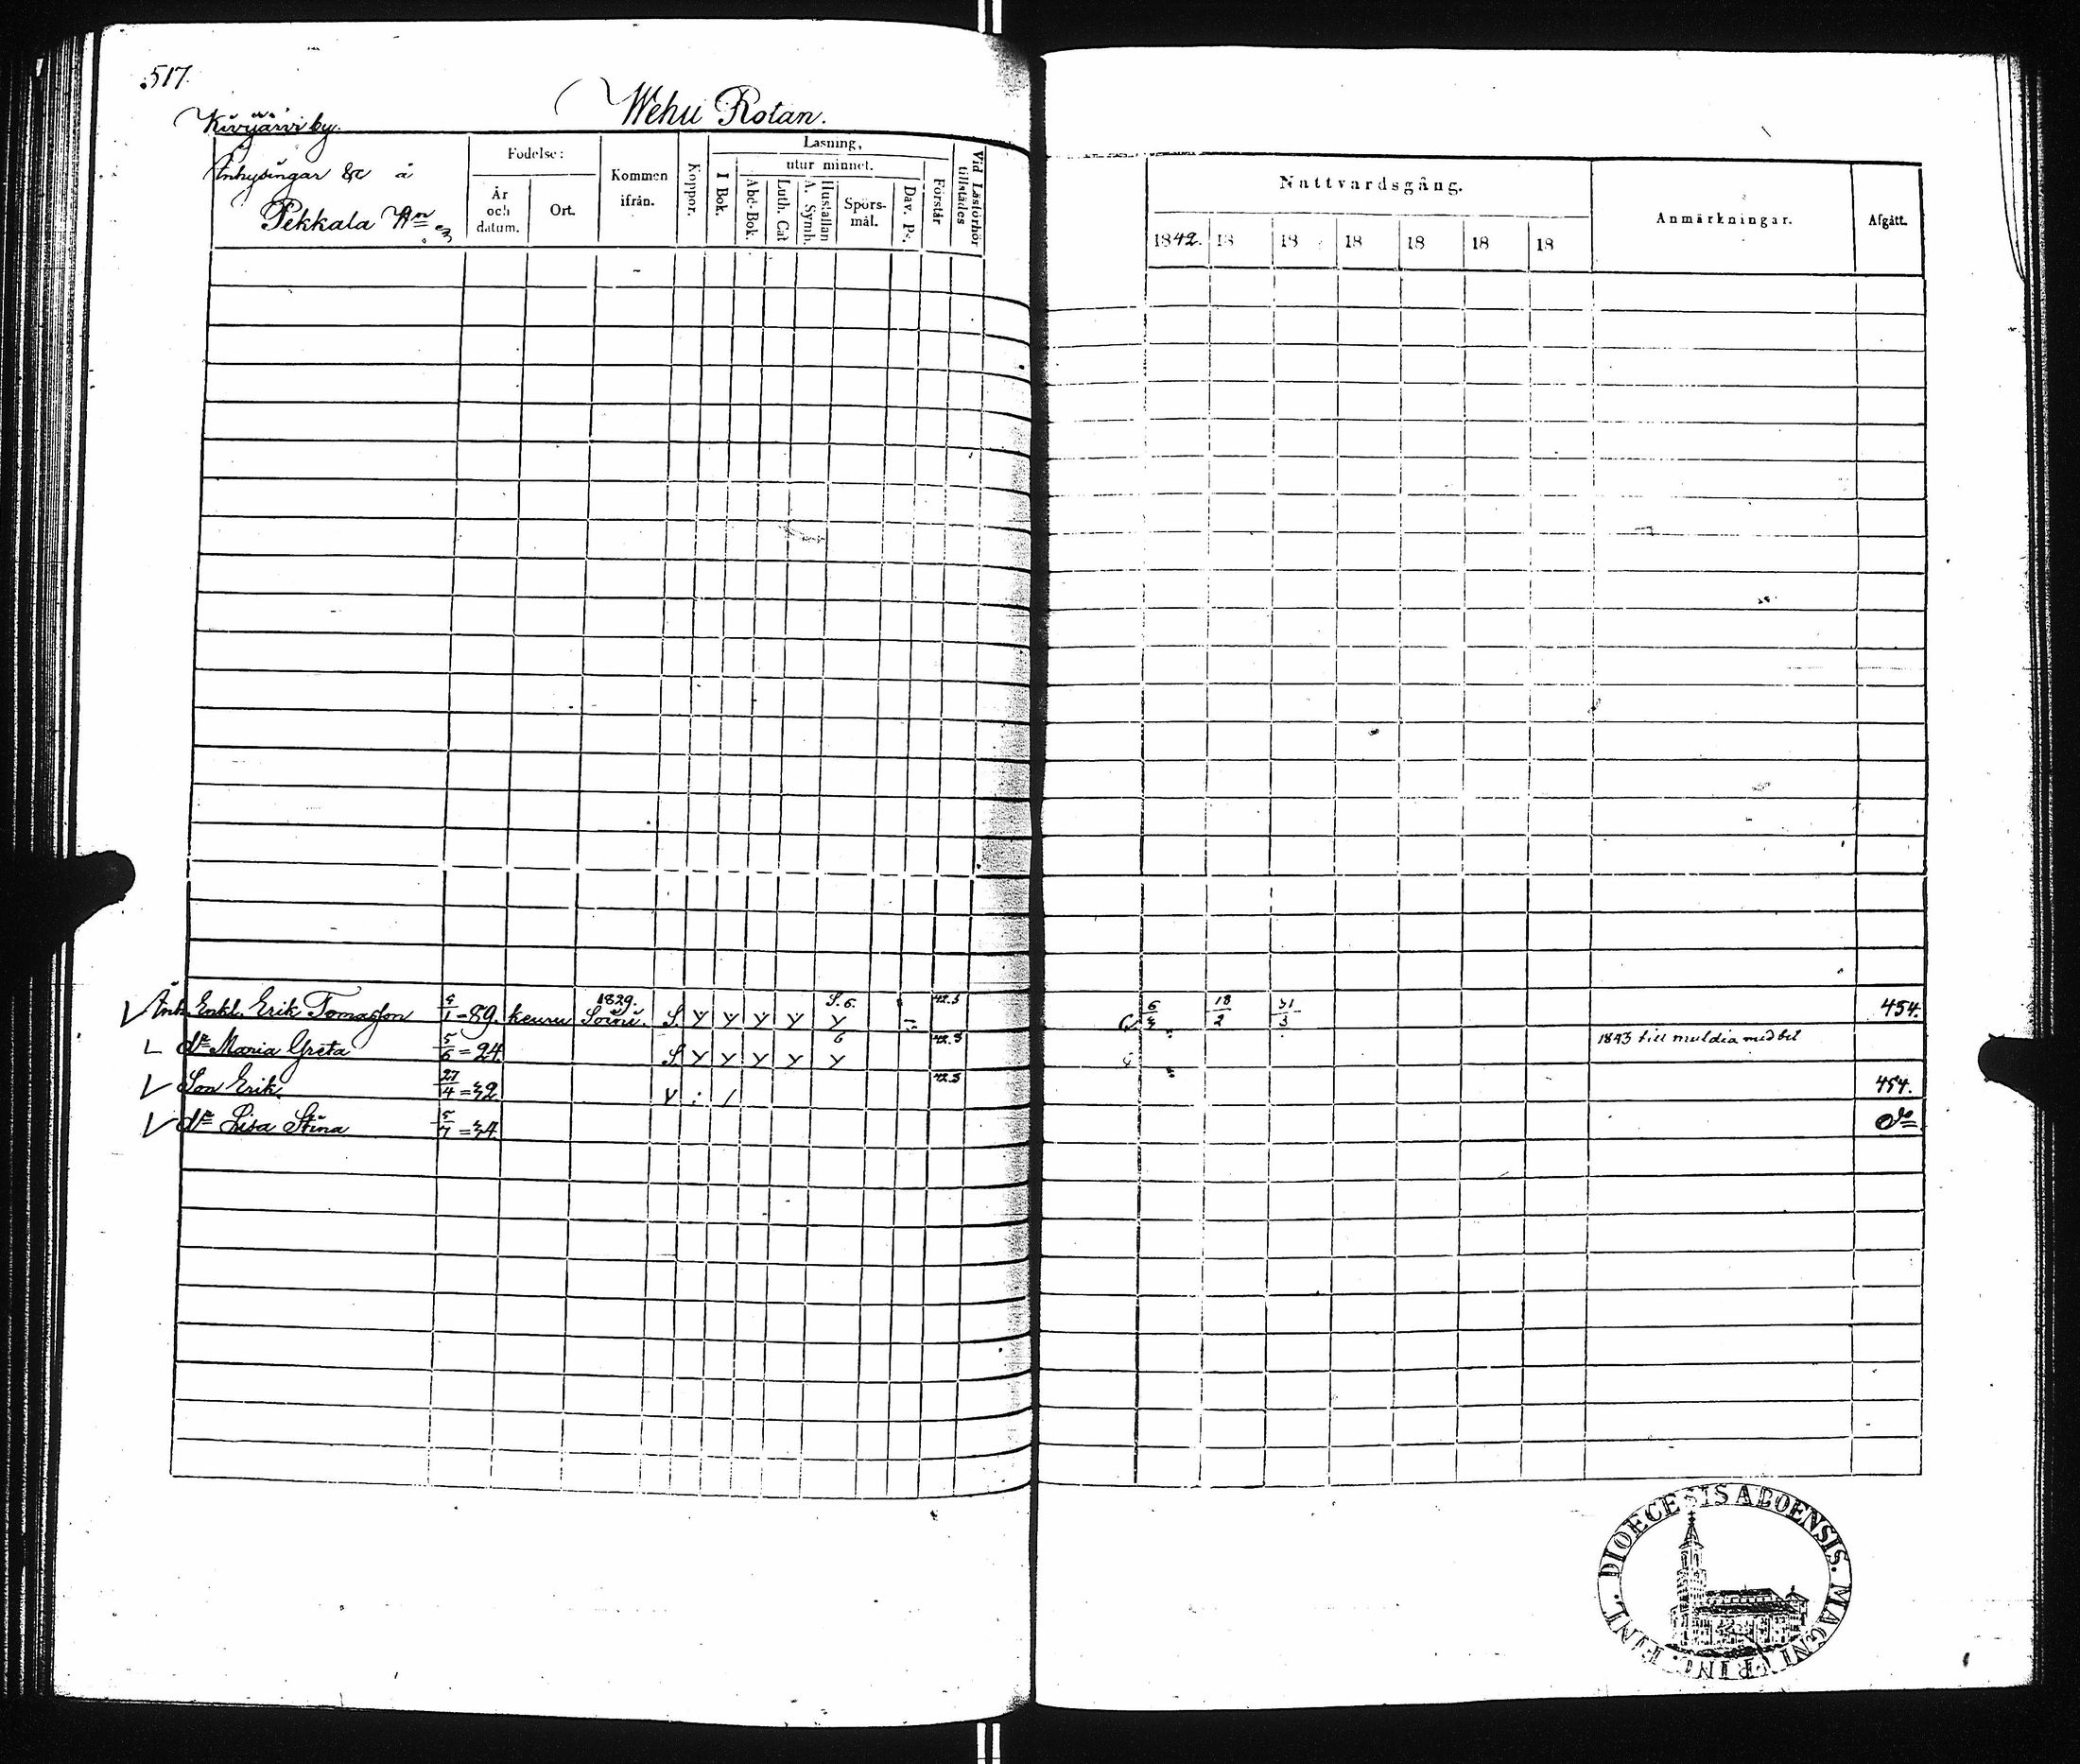 517.
Wehu Rotan.
Kivijärvi by.
Inhysingar &c å
Pekkala
Födelse:
År och datum.
Ort.
Kommen ifrån.
Koppor.
Läsning,
I Bok.
utur minnet.
Abc-Bok.
Luth. Cat
A. Symb. Hustaflan
Spörsmål.
Dav. Ps.
Förstår
Vid Läsförhör tillstädes
Nattvardsgång.
1842. 18 18 18 18 18 18
Anmärkningar.
Afgått.
Inh. Enkl. Erik Tomasson 4/1 = 89. Keuru 1829. Soini. S. Y Y Y Y S. 6. Y 42.3 6/3 18/2 31/3 454.
dr Maria Greta 5/6 = 24. S. Y Y Y Y 6 Y 42.3 1843 till muldia med bet
Son Erik 27/4 = 32 Y : / 42.3 454.
dr Lisa Stina 5/7 = 34. do
DIOECESIS ABOENSIS. MAGNI PRINC. FINL.